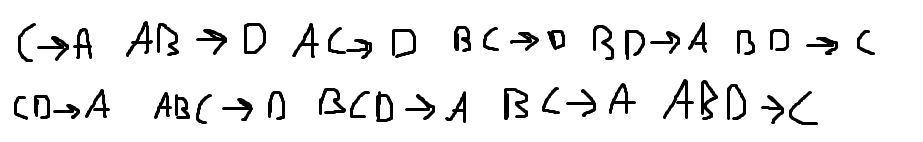 C→A AB→D AC→D BC→D BD→A BD→C
CD→A ABC→D BCD→A BC→A ABD→C